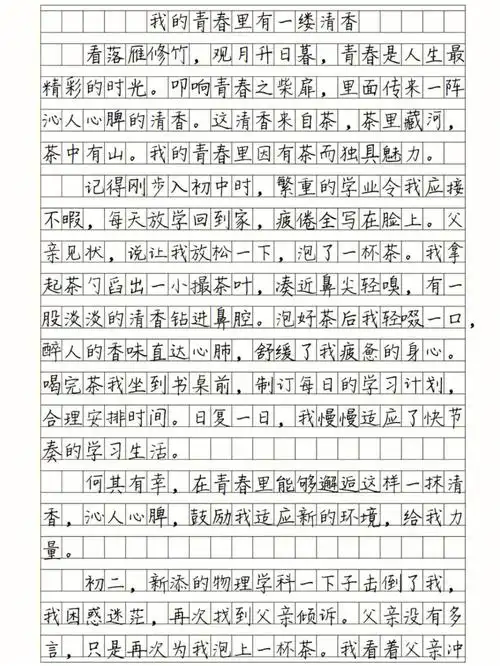 我的青春里有一缕清香
看落雁修竹，观月升日暮，青春是人生最
精彩的时光。叩响青春之柴扉，里面传来一阵
沁人心脾的清香。这清香来自茶，茶里藏河，
茶中有山。我的青春里因有茶而独具魅力。
记得刚步入初中时，繁重的学业令我应接
不暇，每天放学回到家，疲倦全写在脸上。父
亲见状，说让我放松一下，泡了一杯茶。我拿
起茶勺舀出一小撮茶叶，凑近鼻尖轻嗅，有一
股淡淡的清香钻进鼻腔。泡好茶后我轻啜一口，
醉人的香味直达心肺，舒缓了我疲惫的身心。
喝完茶我坐到书桌前，制订每日的学习计划，
合理安排时间。日复一日，我慢慢适应了快节
奏的学习生活。
何其有幸，在青春里能够邂逅这样一抹清
香，沁人心脾，鼓励我适应新的环境，给我力
量。
初二，新添的物理学科一下子击倒了我，
我困惑迷茫，再次找到父亲倾诉。父亲没有多
言，只是再次为我泡上一杯茶。我看着父亲冲